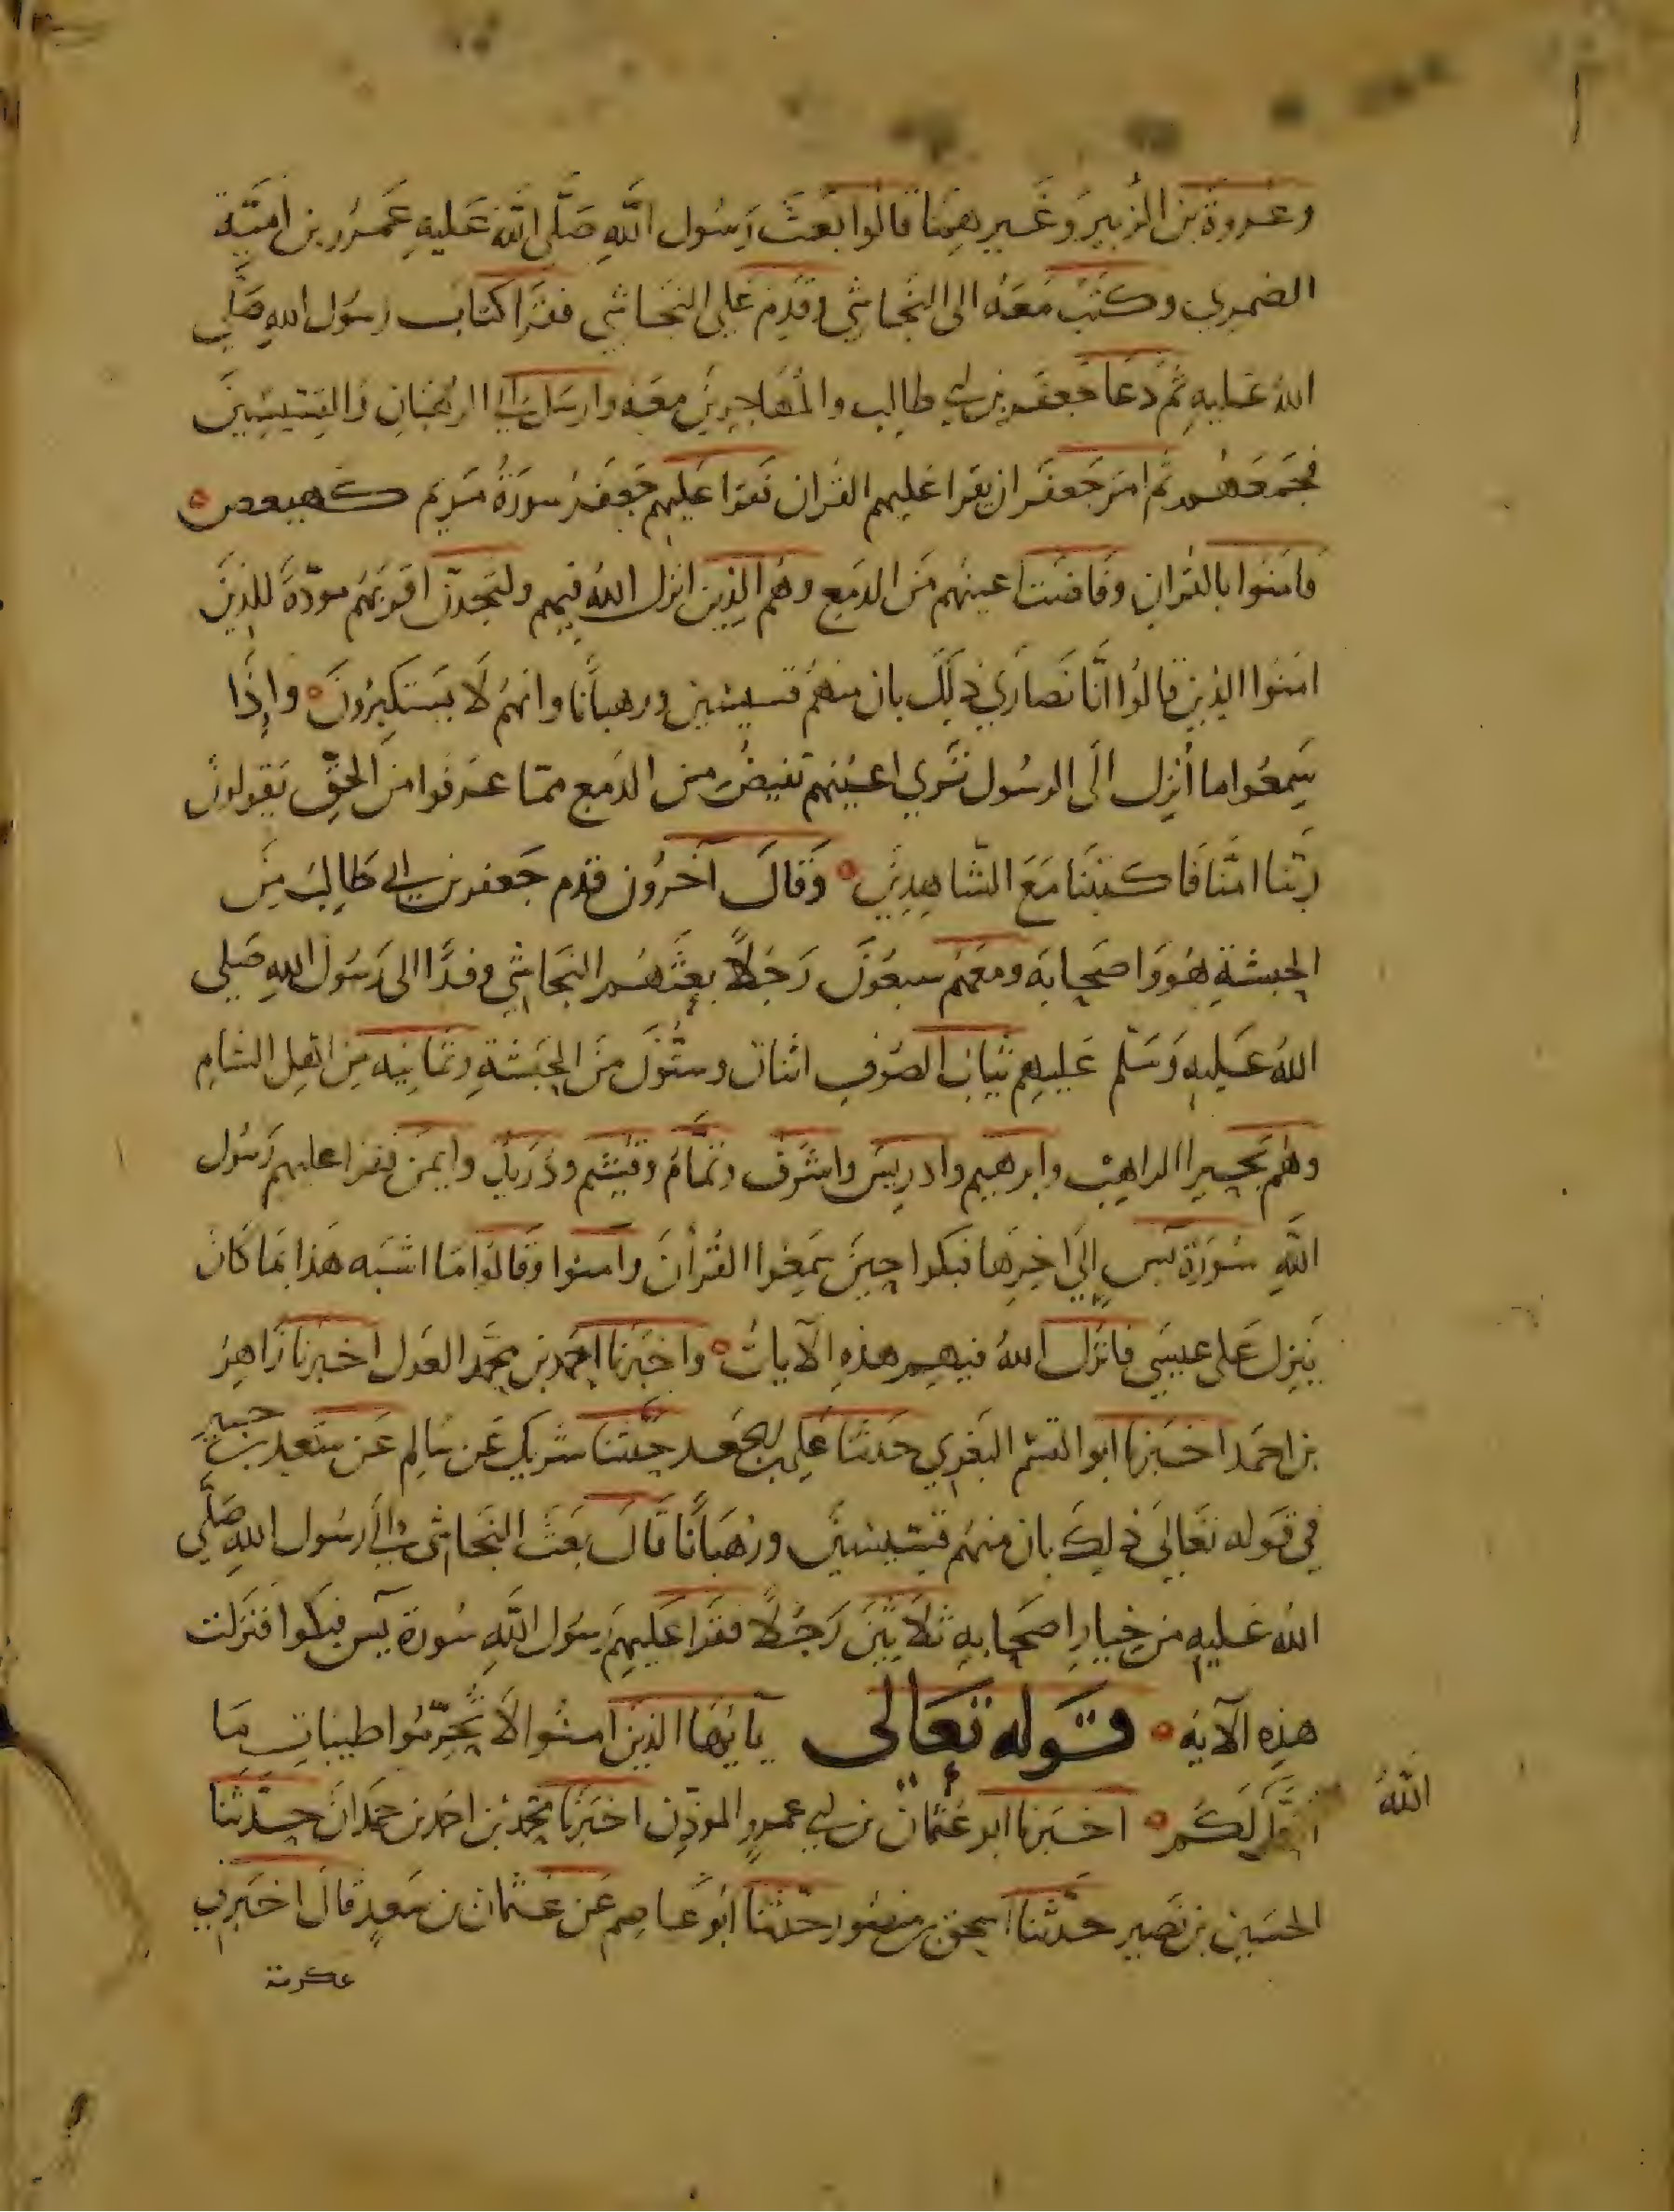 وعروة بن الزبير وغيرهما قالوا بعث رسول الله صلى الله عليه عمرو بن امية
الضمري وكتب معه الى النجاشي فقدم على النجاشي فقرا كتاب رسول الله صلى
الله عليه ثم دعا جعفر بن ابي طالب والمهاجرين معه وارسل الى الرهبان والقسيسين
فجمعهم ثم امر جعفر ان يقرا عليهم القران فقرا عليهم جعفر سورة مريم كهيعص
فامنوا بالقران وفاضت اعينهم من الدمع وهم الذين انزل الله فيهم ولتجدن اقربهم مودة للذين
امنوا الذين قالوا انا نصاري ذلك بان منهم قسيسين ورهبانا وانهم لا يستكبرون واذا
سمعوا ما أنزل الى الرسول ترى اعينهم تفيض من الدمع مما عرفوا من الحق يقولون
ربنا امنا فاكتبنا مع الشاهدين وقال آخرون قدم جعفر بن ابي طالب من
الحبشة هو واصحابه ومعهم سبعون رجلا بعثهم النجاشي وفدا الى رسول الله صلى
الله عليه وسلم عليهم ثياب الصوف اثنان وستون من الحبشة وثمانيه من اهل الشام
وهم بحيرا الراهب وابرهيم وادريس واشرف وتمام وقيثم وذريد وايمن فقرا عليهم رسول
الله سورة يس إلى اخرها فبكوا حين سمعوا القرأن وآمنوا وقالوا ما اشبه هذا بما كان
ينزل على عيسى فانزل الله فيهم هذه الآيات واخبرنا احمد بن محمد العدل اخبرنا زاهر
بن احمد اخبرنا ابو القسم البغوي حدثنا علي بن الجعد حدثنا شريك عن سالم عن سعيد بن جبير
في قوله تعالى ذلك بان منهم قسيسين ورهبانا قال بعث النجاشي الى رسول الله صلى
الله عليه من خيار اصحابه ثلاثين رجلا فقرا عليهم رسول الله سورة يس فبكوا فنزلت
هذه الآيه قوله تعالى يآ يها الذين امنوا لا تحرموا طيبات ما
احل لكم اخبرنا ابو عثمان بن ابي عمرو الموذن اخبرنا محمد بن احمد بن حمدان حدثنا
الله
الحسين بن نصير حدثنا اسحق بن منصور حدثنا ابو عاصم عن عثمان بن سعد قال اخبرني
عكرمة